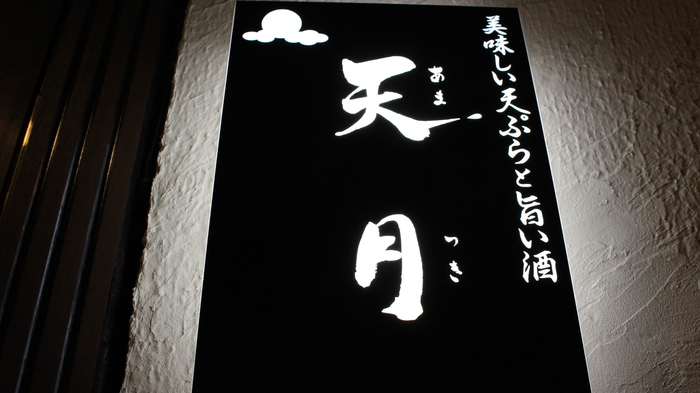 美味しい天ぷらと旨い酒
天月
あまつき